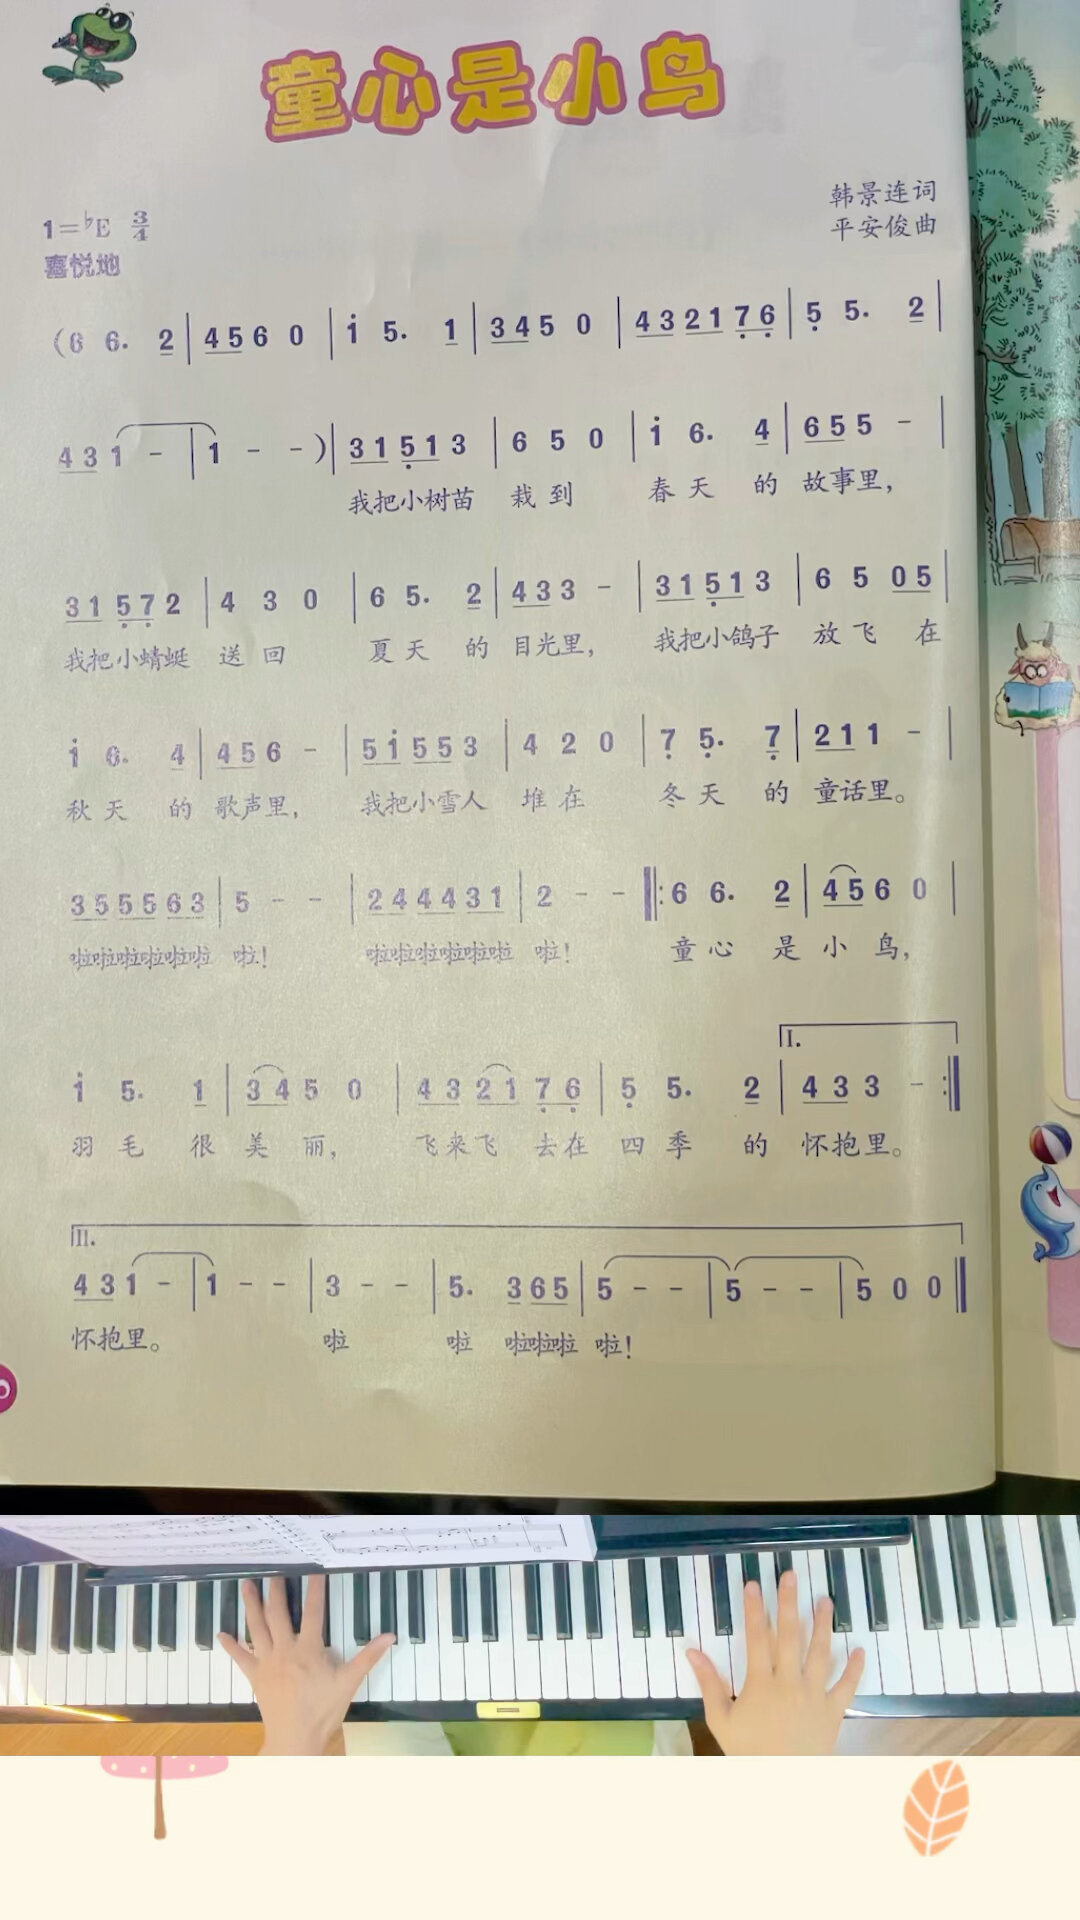 童心是小鸟
韩景连词
1=♭E 3/4
平安俊曲
喜悦地
(6 6. 2 | 4 5 6 0 | i 5. 1 | 3 4 5 0 | 4 3 2 1 7̣ 6̣ | 5̣ 5. 2 |
4 3 1 - | 1 - - ) | 3 1 5̣ 1 3 | 6 5 0 | i 6. 4 | 6 5 5 - |
我把小树苗 栽到 春天 的 故事里,
3 1 5̣ 7̣ 2 | 4 3 0 | 6 5. 2 | 4 3 3 - | 3 1 5̣ 1 3 | 6 5 0 5 |
我把小蜻蜓 送回 夏天 的 目光里, 我把小鸽子 放飞 在
i 6. 4 | 4 5 6 - | 5 i 5 5 3 | 4 2 0 | 7̣ 5̣. 7̣ | 2 1 1 - |
秋天 的 歌声里, 我把小雪人 堆在 冬天 的 童话里。
3 5 5 5 6 3 | 5 - - | 2 4 4 4 3 1 | 2 - - ‖: 6 6. 2 | 4 5 6 0 |
啦啦啦啦啦啦 啦! 啦啦啦啦啦啦 啦! 童心 是 小 鸟,
I.
i 5. 1 | 3 4 5 0 | 4 3 2 1 7̣ 6̣ | 5̣ 5. 2 | 4 3 3 - :‖
羽毛 很 美 丽, 飞来飞 去在 四季 的 怀抱里。
II.
4 3 1 - | 1 - - | 3 - - | 5. 3 6 5 | 5 - - | 5 - - | 5 0 0 ‖
怀抱里。 啦 啦 啦啦啦 啦!